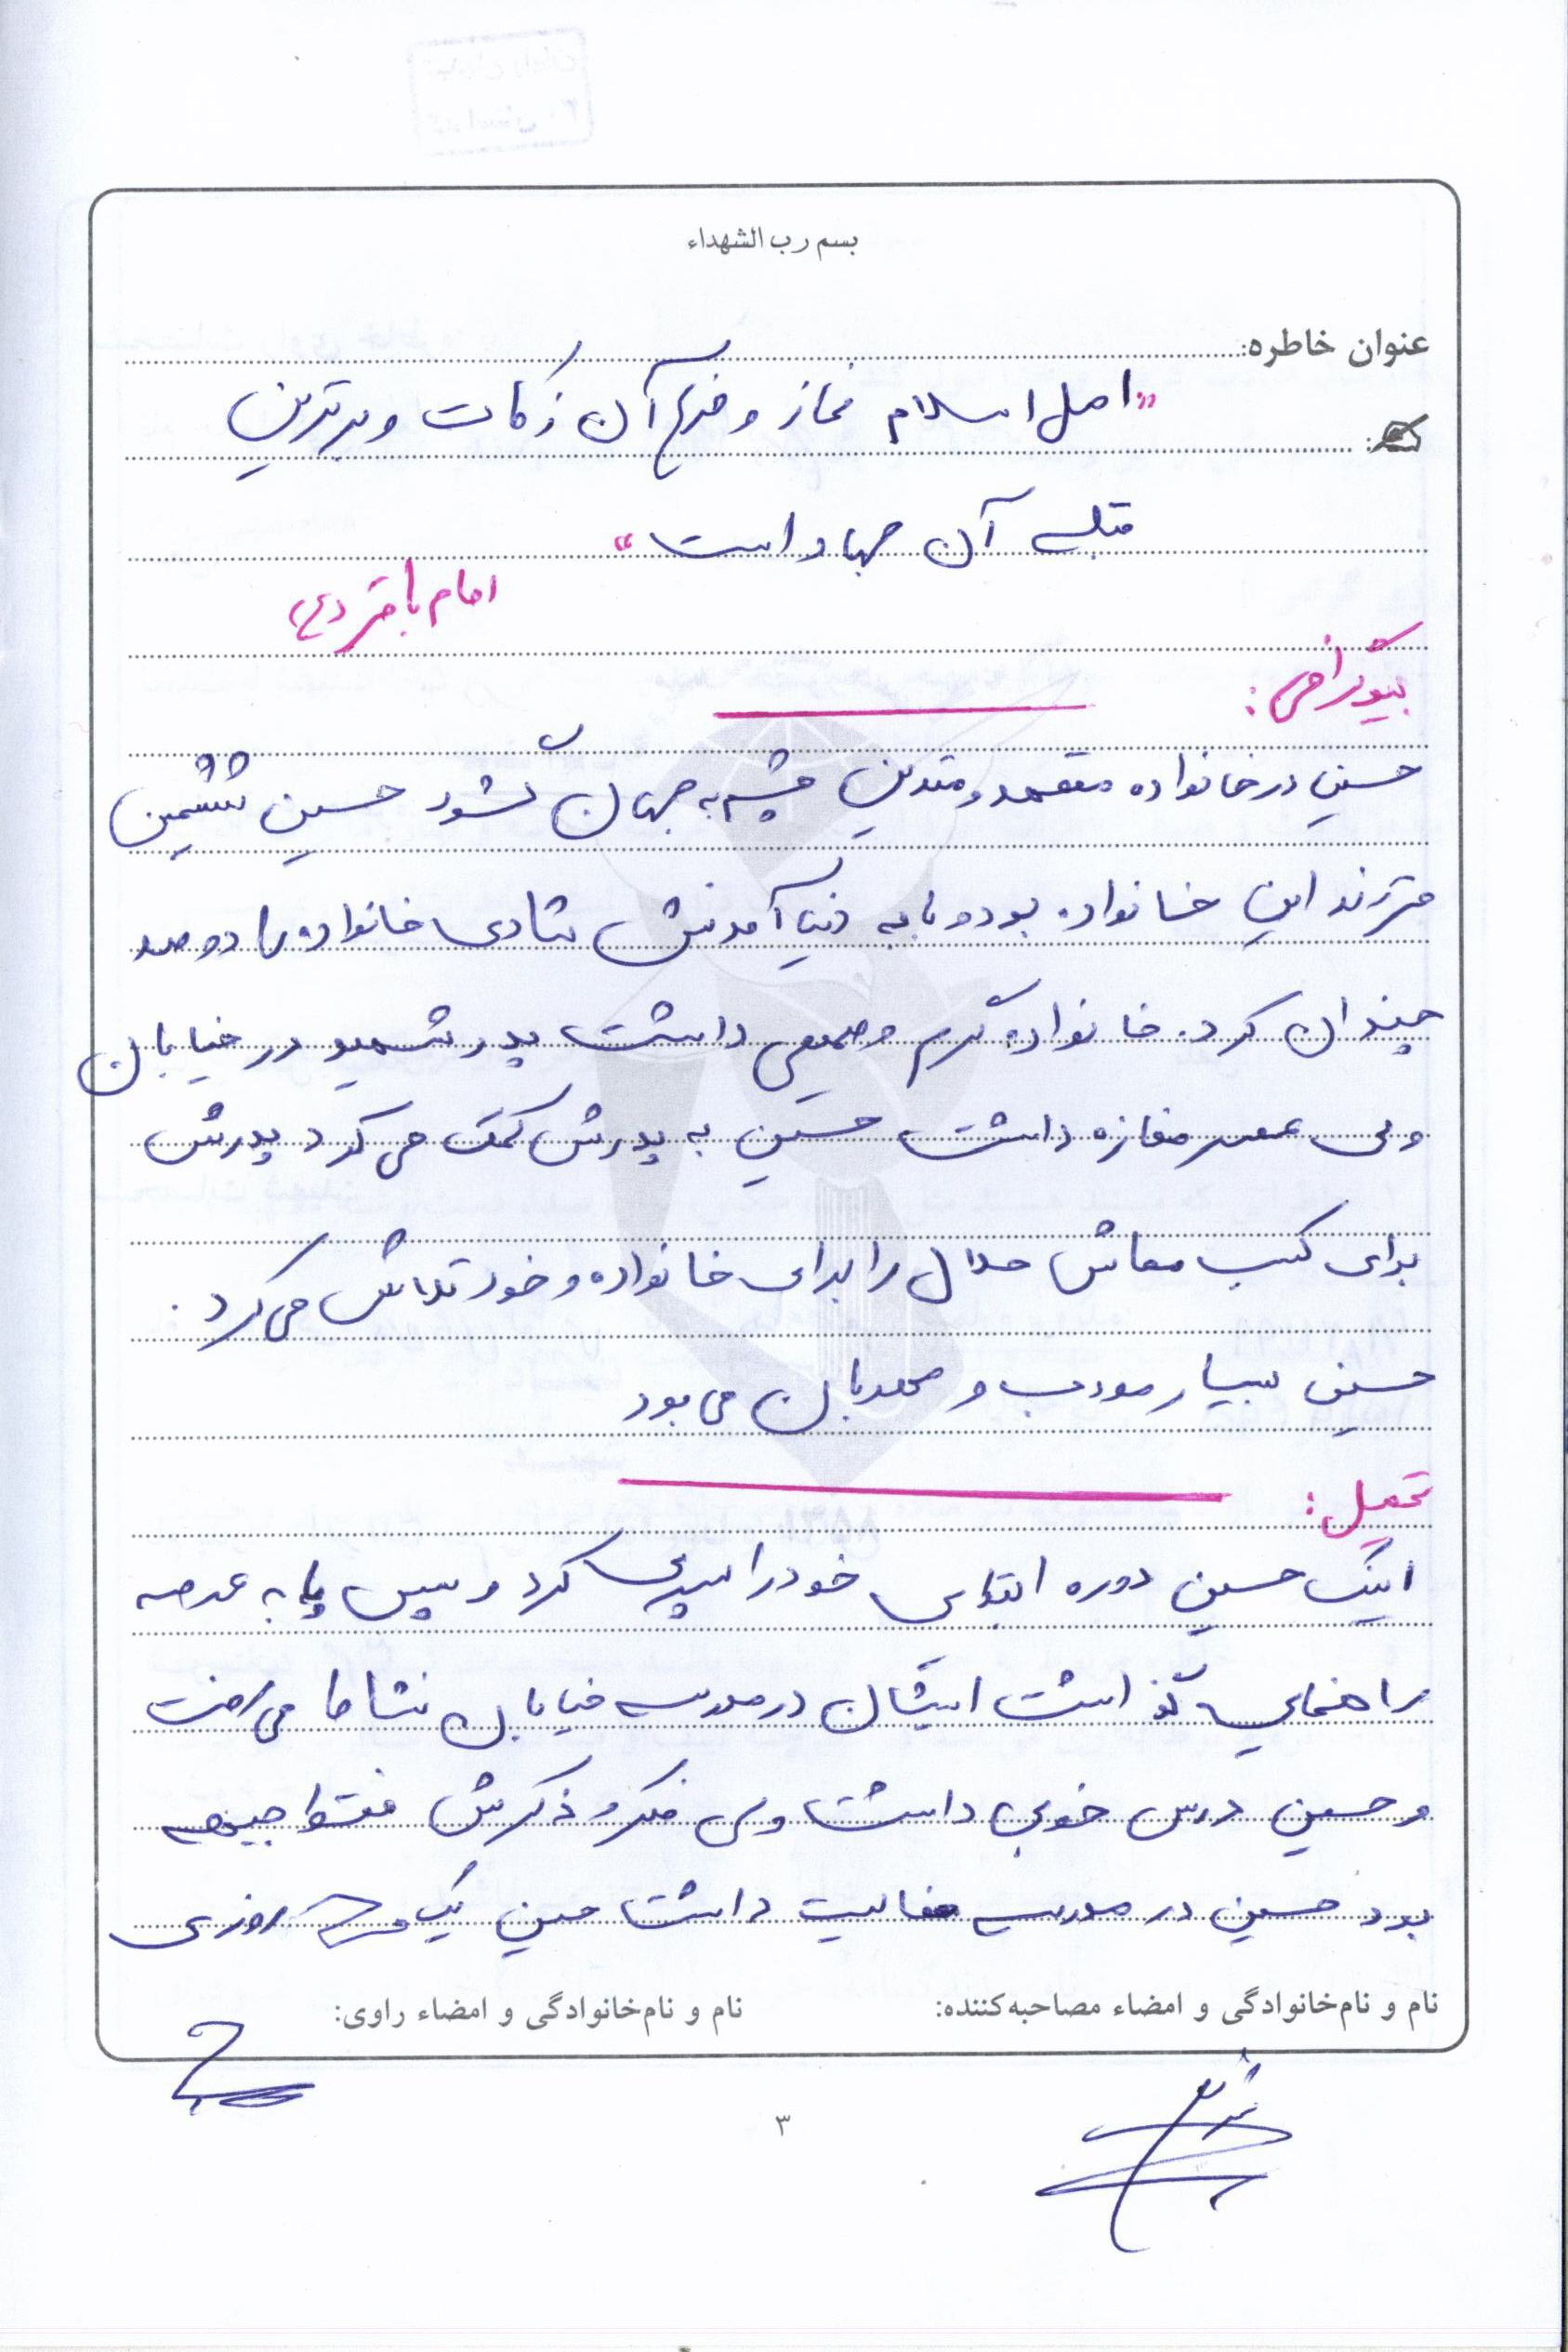 بسم رب الشهداء
عنوان خاطره:
"اصل اسلام نماز و فرع آن زکات و برترین
قله آن جهاد است"
امام باقر (ع)
بیوگرافی:
حسین در خانواده متعهد و متدین چشم به جهان گشود حسین ششمین
فرزند این خانواده بود و با به دنیا آمدنش شادی خانواده را دو صد
چندان کرد. خانواده گرم و صمیمی داشت پدر شهید در خیابان
ولی عصر مغازه داشت حسین به پدرش کمک می کرد پدرش
برای کسب معاش حلال را برای خانواده و خود تلاش می کرد.
حسین بسیار مودب و مهربان می بود
تحصیل:
اینک حسین دوره ابتدایی خود را سپری کرد و سپس پا به عرصه
راهنمایی گذاشت ایشان در مدرسه خیابان نشاط می رفت
و حسین درس خوبی داشت ولی فکر و ذکرش فقط جبهه
بود حسین در مدرسه فعالیت داشت حسین یک روزی
نام و نام‌خانوادگی و امضاء مصاحبه‌کننده:
نام و نام‌خانوادگی و امضاء راوی:
۳